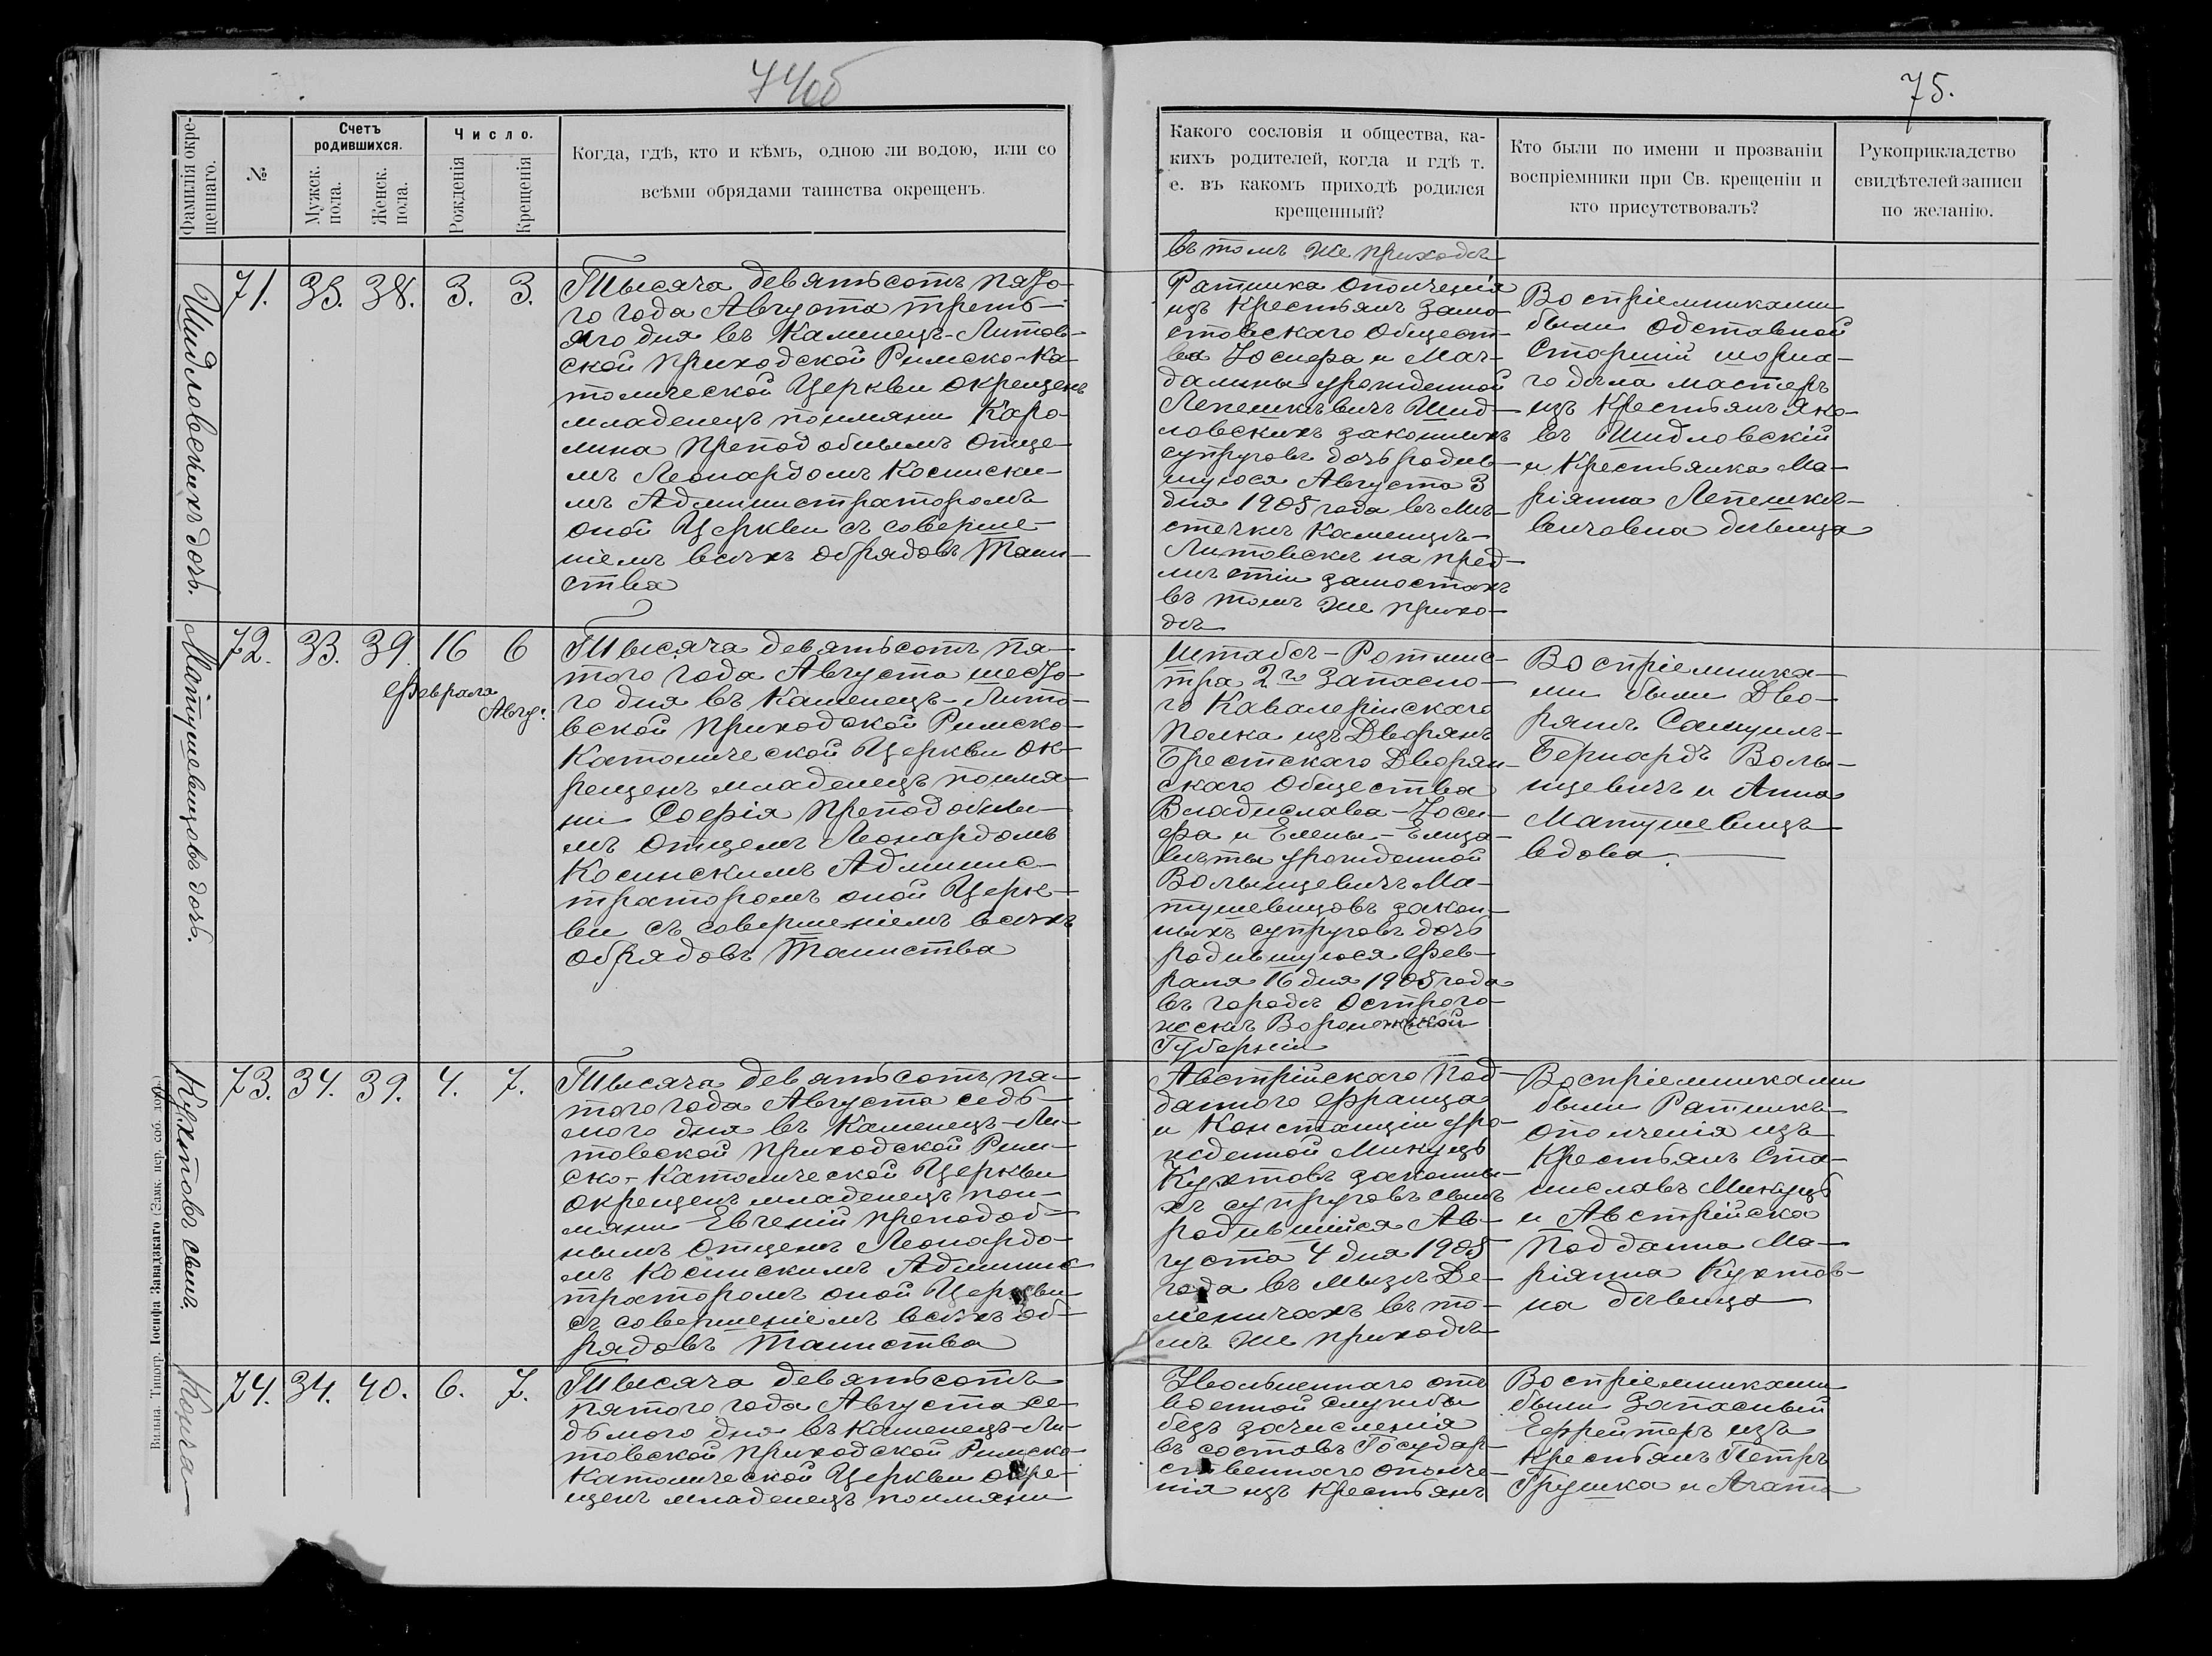 74об
75.
Фамилія окре-
щеннаго.
№
Счетъ
родившихся.
Мужск.
пола.
Женск.
пола.
Число.
Рожденія
Крещенія
Когда, гдѣ, кто и кѣмъ, одною ли водою, или со
всѣми обрядами таинства окрещенъ.
Какого сословія и общества, ка-
кихъ родителей, когда и гдѣ т.
е. въ какомъ приходѣ родился
крещенный?
Кто были по имени и прозванію
воспріемники при Св. крещеніи и
кто присутствовалъ?
Рукоприкладство
свидѣтелей записи
по желанію.
въ томъ же приходѣ
Шидловскихъ дочь.
71. 33. 38. 3. 3.
Тысяча девятьсотъ пято-
го года Августа треть-
яго дня въ Каменецъ-Литов-
ской приходской Римско-Ка-
толической Церкви окрещенъ
младенецъ поимяни Каро-
лина преподобнымъ отце-
мъ Леонардомъ Косински-
мъ Администраторомъ
оной Церкви съ соверше-
ніемъ всѣхъ обрядовъ Таин-
ства
Ратника ополченія
изъ Крестьянъ Замо-
стовскаго Общест-
ва Іосифа и Маг-
далины урожденной
Лепешкѣвичъ Шид-
ловскихъ законныхъ
супруговъ дочь родив-
шуюся Августа 3
дня 1905 года въ Мѣ-
стечкѣ Каменцѣ-
Литовскѣ на пред-
мѣстіи Замостахъ
въ томъ же прихо-
дѣ
Воспріемниками
были Отставной
Старшій шорна-
го дѣла мастеръ
изъ Крестьянъ Яко-
въ Шидловскій
и Крестьянка Ма-
ріянна Лепешкѣ-
вичовна дѣвица
Матушевицовъ дочь.
72. 33. 39. 16 6
февраля
Авгу:
Тысяча девятьсотъ пя-
того года Августа шесто-
го дня въ Каменецъ-Лито-
вской приходской Римско-
Католической Церкви ок-
рещенъ младенецъ поимя-
ни Софія преподобны-
мъ отцемъ Леонардомъ
Косинскимъ Админис-
траторомъ оной Церк-
ви съ совершеніемъ всѣхъ
обрядовъ Таинства
Штабсъ-Ротмис-
тра 2го Запасно-
го Кавалерійскаго
полка изъ Дворянъ
Брестскаго Дворян-
скаго Общества
Владислава-Іоси-
фа и Елены-Елиза-
вѣты урожденной
Волынцевичъ Ма-
тушевицовъ закон-
ныхъ супруговъ дочь
родившуюся фев-
раля 16 дня 1905 года
въ городѣ Острого-
жскѣ Воронежской
Губерніи
Воспріемника-
ми были Дво-
рянъ Самуилъ-
Бернардъ Волы-
нцевичъ и Анна
Матушевицъ
вдова.
Кухтовъ сынъ.
73. 34. 39. 4. 7.
Тысяча девятьсотъ пя-
того года Августа седь-
мого дня въ Каменецъ-Ли-
товской приходской Рим-
ско-Католической Церкви
окрещенъ младенецъ пои-
мяни Евгеній преподоб-
нымъ отцемъ Леонардо-
мъ Косинскимъ Админис
траторомъ оной Церкви
съ совершеніемъ всѣхъ об-
рядовъ Таинства
Австрійскаго Под-
даннаго Франца
и Констанціи уро-
жденной Микуцъ
Кухтовъ законны-
хъ супруговъ сынъ
родившійся Ав-
густа 4 дня 1905
года въ Мызѣ Де-
меничахъ въ то-
мъ же приходѣ
Воспріемниками
были Ратникъ
ополченія изъ
Крестьянъ Ста-
ниславъ Микуцъ
и Австрійска
Поддана Ма-
ріянна Кухтов-
на дѣвица
74. 34. 40. 6. 7.
Тысяча девятьсотъ
пятого года Августа се-
дьмого дня въ Каменецъ-Ли-
товской приходской Римско-
Католической Церкви окре-
щенъ младенецъ поимяни
Уволеннаго отъ
военной службы
безъ зачисленія
въ составъ Государ-
ственнаго ополче-
нія изъ Крестьянъ
Воспріемниками
были Запасный
Ефрейтеръ изъ
Крестьянъ Петръ
Грушка и Агата
Вильна. Типогр. Іосифа Завадзкаго (Замк. пер. соб. домъ.)